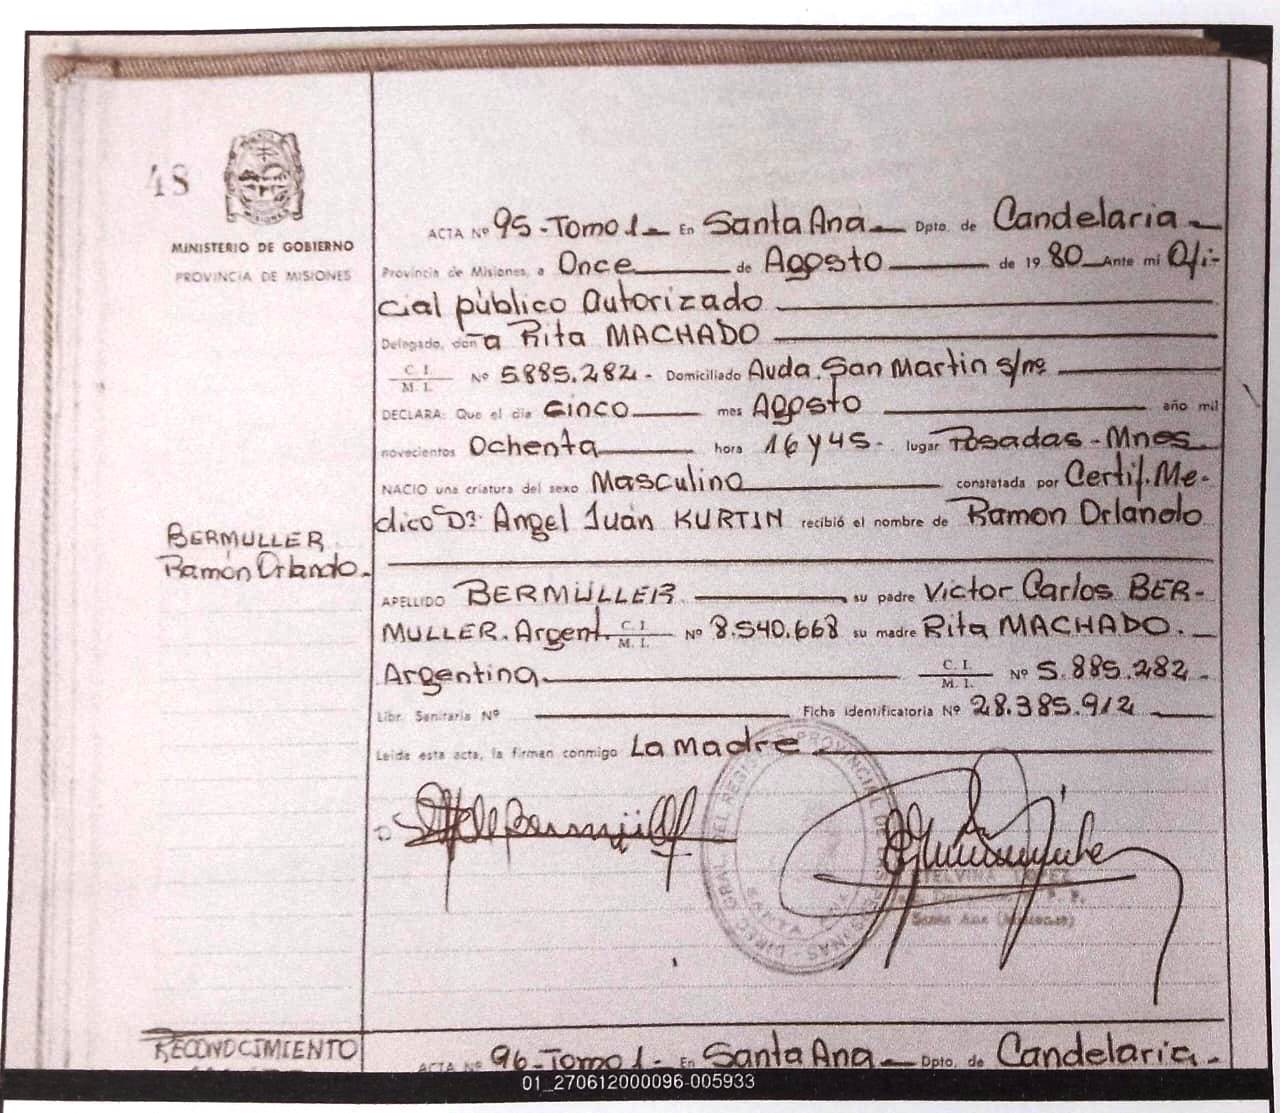 48
MINISTERIO DE GOBIERNO
PROVINCIA DE MISIONES
BERMULLER
Ramón Orlando.
ACTA Nº 95-Tomo 1- En Santa Ana- Dpto. de Candelaria-
Provincia de Misiones, a Once de Agosto de 1980 Ante mi Ofi-
cial público autorizado
Delegado, don a Rita MACHADO
C. I. / M. I. Nº 5.885.282- Domiciliado Avda. San Martin s/nº
DECLARA: Que el día cinco mes Agosto año mil
novecientos Ochenta hora 16 y 45- lugar Posadas-Mnes
NACIO una criatura del sexo Masculino constatada por Certif. Me-
dico Dr. Angel Juan KURTIN recibió el nombre de Ramon Orlando
APELLIDO BERMÜLLER su padre Victor Carlos BER-
MULLER. Argent. C. I. / M. I. Nº 8.540.668 su madre Rita MACHADO.
Argentina C. I. / M. I. Nº 5.885.282-
Libr. Sanitaria Nº Ficha identificatoria Nº 28.385.912
Leída esta acta, la firman conmigo La madre
ETELVINA LOPEZ
Santa Ana (Misiones)
RECONOCIMIENTO
ACTA Nº 96-Tomo 1- En Santa Ana- Dpto. de Candelaria-
01_270612000096-005933